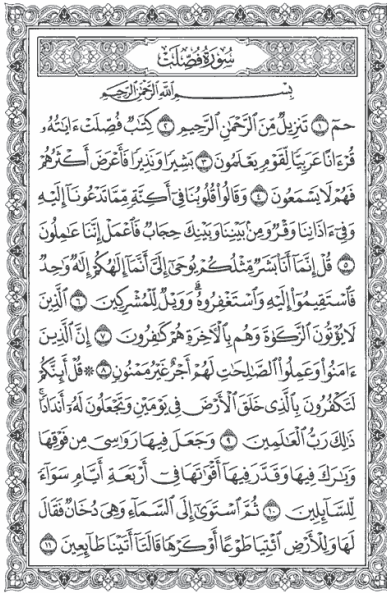 سُورَةُ فُصِّلَتْ
بِسْمِ ٱللَّهِ ٱلرَّحْمَٰنِ ٱلرَّحِيمِ
حمٓ ١ تَنزِيلٌ مِّنَ ٱلرَّحْمَٰنِ ٱلرَّحِيمِ ٢ كِتَٰبٌ فُصِّلَتْ ءَايَٰتُهُۥ
قُرْءَانًا عَرَبِيًّا لِّقَوْمٍ يَعْلَمُونَ ٣ بَشِيرًا وَنَذِيرًا فَأَعْرَضَ أَكْثَرُهُمْ
فَهُمْ لَا يَسْمَعُونَ ٤ وَقَالُوا۟ قُلُوبُنَا فِىٓ أَكِنَّةٍ مِّمَّا تَدْعُونَآ إِلَيْهِ
وَفِىٓ ءَاذَانِنَا وَقْرٌ وَمِنۢ بَيْنِنَا وَبَيْنِكَ حِجَابٌ فَٱعْمَلْ إِنَّنَا عَٰمِلُونَ
٥ قُلْ إِنَّمَآ أَنَا۠ بَشَرٌ مِّثْلُكُمْ يُوحَىٰٓ إِلَىَّ أَنَّمَآ إِلَٰهُكُمْ إِلَٰهٌ وَٰحِدٌ
فَٱسْتَقِيمُوٓا۟ إِلَيْهِ وَٱسْتَغْفِرُوهُ ۗ وَوَيْلٌ لِّلْمُشْرِكِينَ ٦ ٱلَّذِينَ
لَا يُؤْتُونَ ٱلزَّكَوٰةَ وَهُم بِٱلْءَاخِرَةِ هُمْ كَٰفِرُونَ ٧ إِنَّ ٱلَّذِينَ
ءَامَنُوا۟ وَعَمِلُوا۟ ٱلصَّٰلِحَٰتِ لَهُمْ أَجْرٌ غَيْرُ مَمْنُونٍ ٨ ۞ قُلْ أَئِنَّكُمْ
لَتَكْفُرُونَ بِٱلَّذِى خَلَقَ ٱلْأَرْضَ فِى يَوْمَيْنِ وَتَجْعَلُونَ لَهُۥٓ أَندَادًا ۚ
ذَٰلِكَ رَبُّ ٱلْعَٰلَمِينَ ٩ وَجَعَلَ فِيهَا رَوَٰسِىَ مِن فَوْقِهَا
وَبَٰرَكَ فِيهَا وَقَدَّرَ فِيهَآ أَقْوَٰتَهَا فِىٓ أَرْبَعَةِ أَيَّامٍ سَوَآءً
لِّلسَّآئِلِينَ ١٠ ثُمَّ ٱسْتَوَىٰٓ إِلَى ٱلسَّمَآءِ وَهِىَ دُخَانٌ فَقَالَ
لَهَا وَلِلْأَرْضِ ٱئْتِيَا طَوْعًا أَوْ كَرْهًا قَالَتَآ أَتَيْنَا طَآئِعِينَ ١١